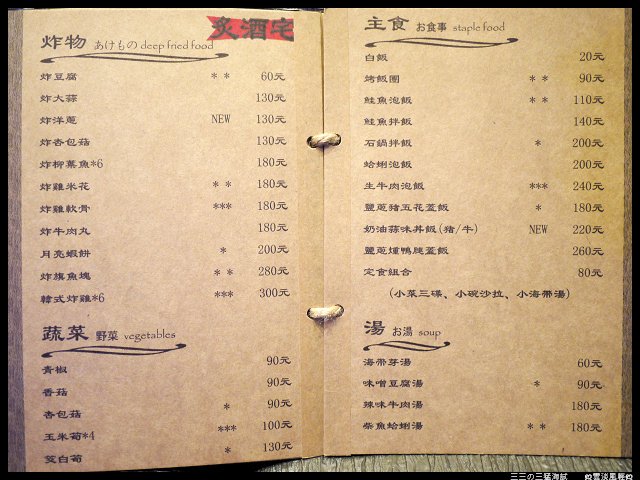 炙酒宅
炸物 あけもの deep fried food
炸豆腐 * * 60元
炸大蒜 130元
炸洋蔥 NEW 130元
炸杏包菇 130元
炸柳葉魚*6 180元
炸雞米花 * * 180元
炸雞軟骨 *** 180元
炸牛肉丸 180元
月亮蝦餅 * 200元
炸旗魚塊 * * 280元
韓式炸雞*6 *** 300元
蔬菜 野菜 vegetables
青椒 90元
香菇 90元
杏包菇 * 90元
玉米筍*4 *** 100元
筊白筍 * 130元
主食 お食事 staple food
白飯 20元
烤飯團 * * 90元
鮭魚泡飯 * * 110元
鮭魚拌飯 140元
石鍋拌飯 * 200元
蛤蜊泡飯 200元
生牛肉泡飯 *** 240元
鹽蔥豬五花蓋飯 * 180元
奶油蒜味丼飯(豬/牛) NEW 220元
鹽蔥燻鴨腿蓋飯 260元
定食組合 80元
(小菜三碟、小碗沙拉、小海帶湯)
湯 お湯 soup
海帶芽湯 60元
味噌豆腐湯 * 90元
辣味牛肉湯 180元
柴魚蛤蜊湯 * * 180元
三三の三猛海賊